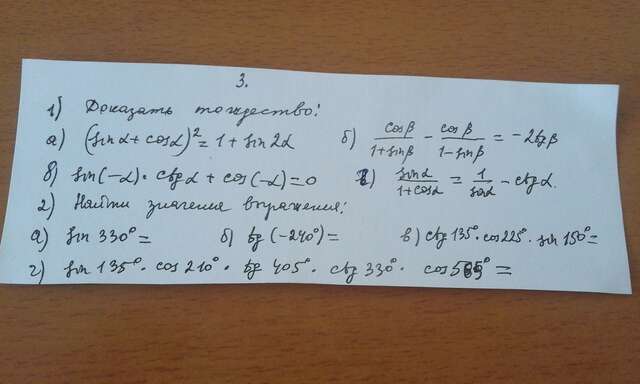 3.
1) Доказать тождество:
а) (sinα + cosα)² = 1 + sin2α   б) cosβ/(1+sinβ) - cosβ/(1-sinβ) = -2tgβ
в) sin(-α) · ctgα + cos(-α) = 0   г) sinα/(1+cosα) = 1/sinα - ctgα.
2) Найти значения выражения:
а) sin 330° =   б) tg(-240°) =   в) ctg 135° · cos 225° · sin 150° =
г) sin 135° · cos 210° · tg 405° · ctg 330° ·